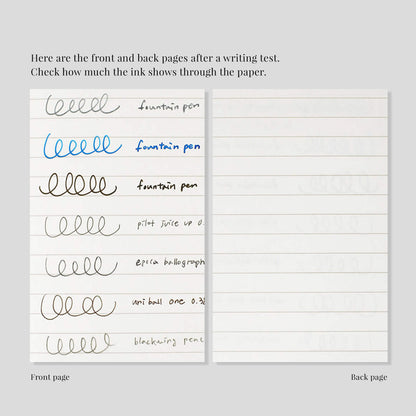 Here are the front and back pages after a writing test.
Check how much the ink shows through the paper.
fountain pen
fountain pen
fountain pen
pilot juice up 0.
epica ballograph
uni ball one 0.38
blackwing penc
Front page
Back page